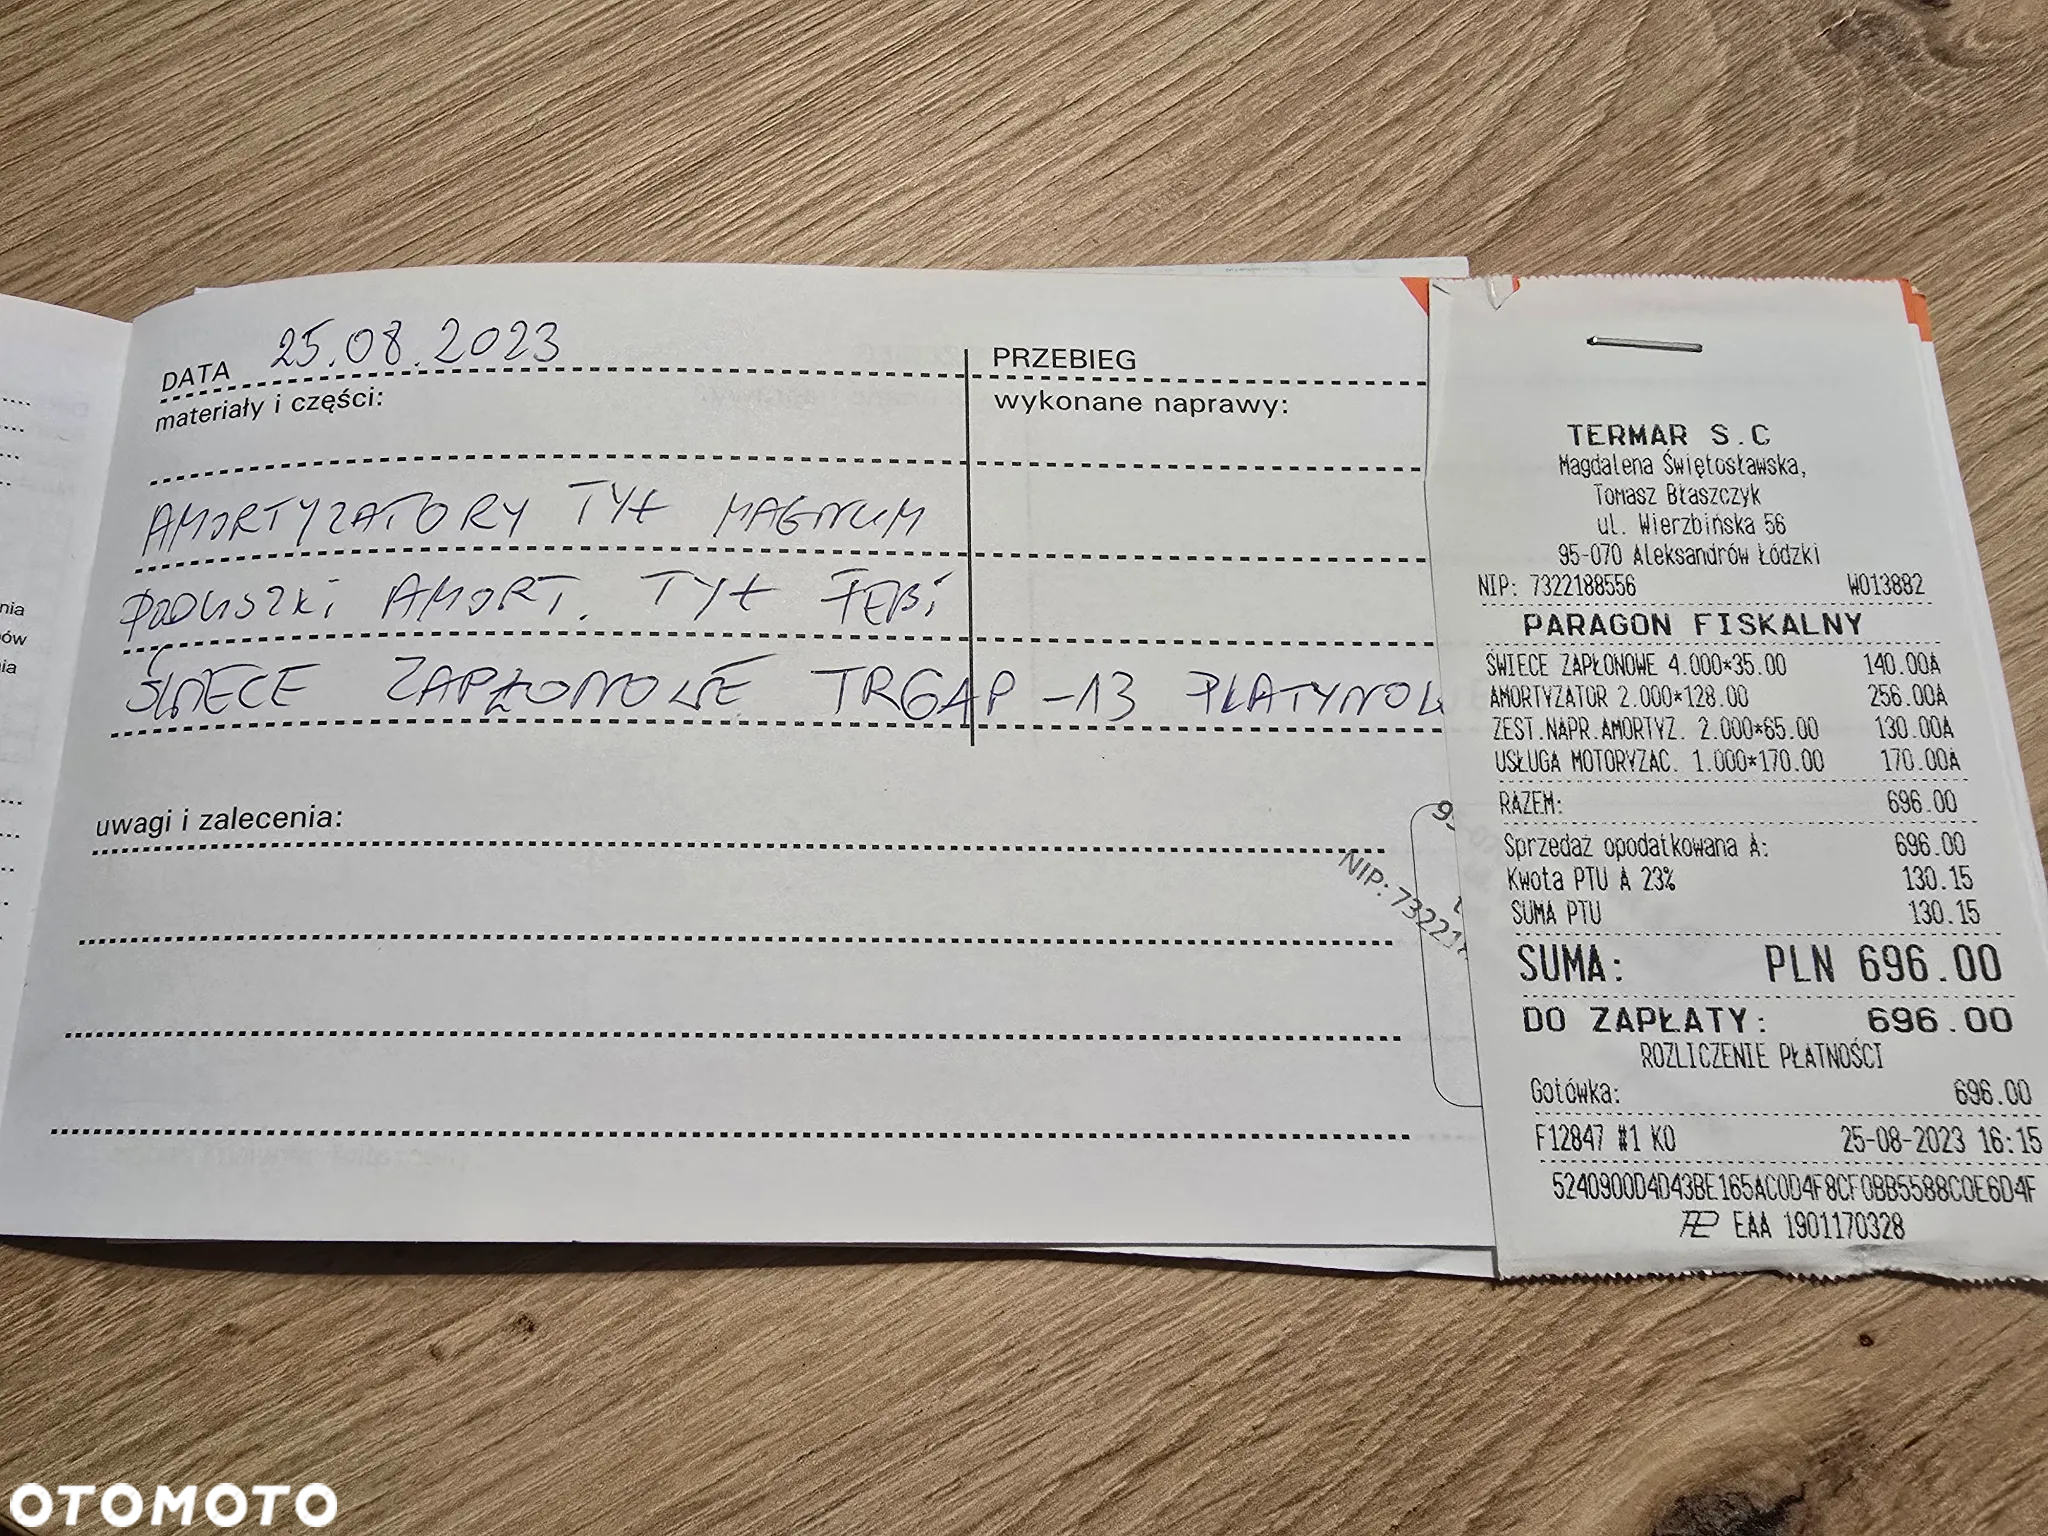 DATA 25.08.2023
PRZEBIEG
materiały i części:
wykonane naprawy:
AMORTYZATORY TYŁ MAGNUM
PODUSZKI AMORT. TYŁ FEBI
ŚWIECE ZAPŁONOWE TR6AP-13 PLATYNOW
uwagi i zalecenia:
NIP: 73221
nia
ów
ia
TERMAR S.C
Magdalena Świętosławska,
Tomasz Błaszczyk
ul. Wierzbińska 56
95-070 Aleksandrów Łódzki
NIP: 7322188556 W013882
PARAGON FISKALNY
ŚWIECE ZAPŁONOWE 4.000*35.00 140.00A
AMORTYZATOR 2.000*128.00 256.00A
ZEST.NAPR.AMORTYZ. 2.000*65.00 130.00A
USŁUGA MOTORYZAC. 1.000*170.00 170.00A
RAZEM: 696.00
Sprzedaż opodatkowana A: 696.00
Kwota PTU A 23% 130.15
SUMA PTU 130.15
SUMA: PLN 696.00
DO ZAPŁATY: 696.00
ROZLICZENIE PŁATNOŚCI
Gotówka: 696.00
F12847 #1 KO 25-08-2023 16:15
5240900D4D43BE165AC0D4F8CF0BB5588C0E6D4F
EAA 1901170328
OTOMOTO